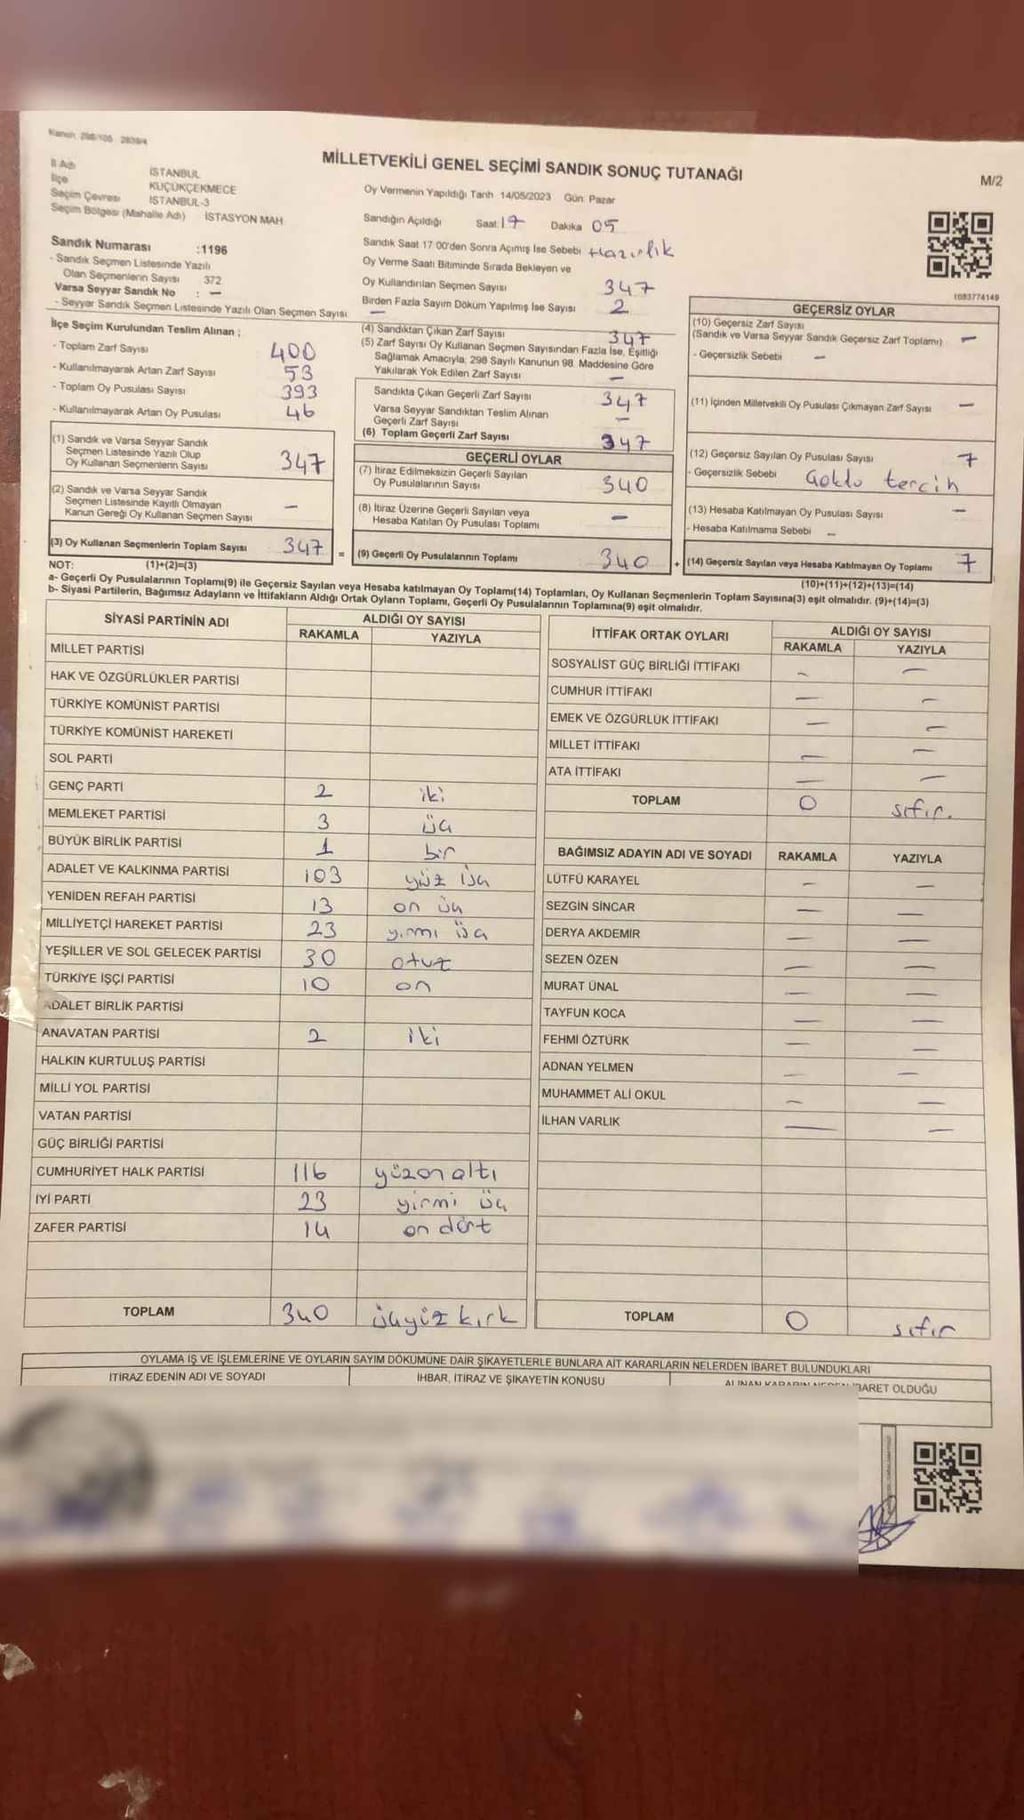 Kanun: 298/105 2839/4
MİLLETVEKİLİ GENEL SEÇİMİ SANDIK SONUÇ TUTANAĞI
M/2
İl Adı İSTANBUL
İlçe KÜÇÜKÇEKMECE
Seçim Çevresi İSTANBUL-3
Seçim Bölgesi (Mahalle Adı) İSTASYON MAH
Sandık Numarası :1196
- Sandık Seçmen Listesinde Yazılı
Olan Seçmenlerin Sayısı 372
Varsa Seyyar Sandık No : —
- Seyyar Sandık Seçmen Listesinde Yazılı Olan Seçmen Sayısı —
Oy Vermenin Yapıldığı Tarih 14/05/2023 Gün: Pazar
Sandığın Açıldığı Saat: 17 Dakika 05
Sandık Saat 17 00'den Sonra Açımış İse Sebebi Hazırlık
Oy Verme Saati Bitiminde Sırada Bekleyen ve
Oy Kullandırılan Seçmen Sayısı 347
Birden Fazla Sayım Döküm Yapılmış İse Sayısı 2
1083774149
İlçe Seçim Kurulundan Teslim Alınan ;
- Toplam Zarf Sayısı 400
- Kullanılmayarak Artan Zarf Sayısı 53
- Toplam Oy Pusulası Sayısı 393
- Kullanılmayarak Artan Oy Pusulası 46
(1) Sandık ve Varsa Seyyar Sandık
Seçmen Listesinde Yazılı Olup
Oy Kullanan Seçmenlerin Sayısı 347
(2) Sandık ve Varsa Seyyar Sandık
Seçmen Listesinde Kayıtlı Olmayan
Kanun Gereği Oy Kullanan Seçmen Sayısı —
(3) Oy Kullanan Seçmenlerin Toplam Sayısı 347 =
(4) Sandıktan Çıkan Zarf Sayısı 347
(5) Zarf Sayısı Oy Kullanan Seçmen Sayısından Fazla İse, Eşitliği
Sağlamak Amacıyla, 298 Sayılı Kanunun 98. Maddesine Göre
Yakılarak Yok Edilen Zarf Sayısı —
Sandıkta Çıkan Geçerli Zarf Sayısı 347
Varsa Seyyar Sandıktan Teslim Alınan
Geçerli Zarf Sayısı —
(6) Toplam Geçerli Zarf Sayısı 347
GEÇERLİ OYLAR
(7) İtiraz Edilmeksizin Geçerli Sayılan
Oy Pusulalarının Sayısı 340
(8) İtiraz Üzerine Geçerli Sayılan veya
Hesaba Katılan Oy Pusulası Toplamı —
(9) Geçerli Oy Pusulalarının Toplamı 340 +
GEÇERSİZ OYLAR
(10) Geçersiz Zarf Sayısı
(Sandık ve Varsa Seyyar Sandık Geçersiz Zarf Toplamı) —
- Geçersizlik Sebebi —
(11) İçinden Milletvekili Oy Pusulası Çıkmayan Zarf Sayısı —
(12) Geçersiz Sayılan Oy Pusulası Sayısı 7
- Geçersizlik Sebebi Çoklu tercih
(13) Hesaba Katılmayan Oy Pusulası Sayısı —
- Hesaba Katılmama Sebebi —
(14) Geçersiz Sayılan veya Hesaba Katılmayan Oy Toplamı 7
NOT: (1)+(2)=(3)
(10)+(11)+(12)+(13)=(14)
a- Geçerli Oy Pusulalarının Toplamı(9) ile Geçersiz Sayılan veya Hesaba katılmayan Oy Toplamı(14) Toplamları, Oy Kullanan Seçmenlerin Toplam Sayısına(3) eşit olmalıdır. (9)+(14)=(3)
b- Siyasi Partilerin, Bağımsız Adayların ve İttifakların Aldığı Ortak Oyların Toplamı, Geçerli Oy Pusulalarının Toplamına(9) eşit olmalıdır.
SİYASİ PARTİNİN ADI ALDIĞI OY SAYISI
RAKAMLA YAZIYLA
MİLLET PARTİSİ
HAK VE ÖZGÜRLÜKLER PARTİSİ
TÜRKİYE KOMÜNİST PARTİSİ
TÜRKİYE KOMÜNİST HAREKETİ
SOL PARTİ
GENÇ PARTİ 2 iki
MEMLEKET PARTİSİ 3 üç
BÜYÜK BİRLİK PARTİSİ 1 bir
ADALET VE KALKINMA PARTİSİ 103 yüz üç
YENİDEN REFAH PARTİSİ 13 on üç
MİLLİYETÇİ HAREKET PARTİSİ 23 yirmi üç
YEŞİLLER VE SOL GELECEK PARTİSİ 30 otuz
TÜRKİYE İŞÇİ PARTİSİ 10 on
ADALET BİRLİK PARTİSİ
ANAVATAN PARTİSİ 2 iki
HALKIN KURTULUŞ PARTİSİ
MİLLİ YOL PARTİSİ
VATAN PARTİSİ
GÜÇ BİRLİĞİ PARTİSİ
CUMHURİYET HALK PARTİSİ 116 yüzon altı
İYİ PARTİ 23 yirmi üç
ZAFER PARTİSİ 14 on dört
TOPLAM 340 üçyüz kırk
İTTİFAK ORTAK OYLARI ALDIĞI OY SAYISI
RAKAMLA YAZIYLA
SOSYALİST GÜÇ BİRLİĞİ İTTİFAKI — —
CUMHUR İTTİFAKI — —
EMEK VE ÖZGÜRLÜK İTTİFAKI — —
MİLLET İTTİFAKI — —
ATA İTTİFAKI — —
TOPLAM 0 sıfır.
BAĞIMSIZ ADAYIN ADI VE SOYADI RAKAMLA YAZIYLA
LÜTFÜ KARAYEL — —
SEZGİN SİNCAR — —
DERYA AKDEMİR — —
SEZEN ÖZEN — —
MURAT ÜNAL — —
TAYFUN KOCA — —
FEHMİ ÖZTÜRK — —
ADNAN YELMEN — —
MUHAMMET ALİ OKUL — —
İLHAN VARLIK — —
TOPLAM 0 sıfır
OYLAMA İŞ VE İŞLEMLERİNE VE OYLARIN SAYIM DÖKÜMÜNE DAİR ŞİKAYETLERLE BUNLARA AİT KARARLARIN NELERDEN İBARET BULUNDUKLARI
İTİRAZ EDENİN ADI VE SOYADI İHBAR, İTİRAZ VE ŞİKAYETİN KONUSU ALINAN KARARIN NEDEN İBARET OLDUĞU